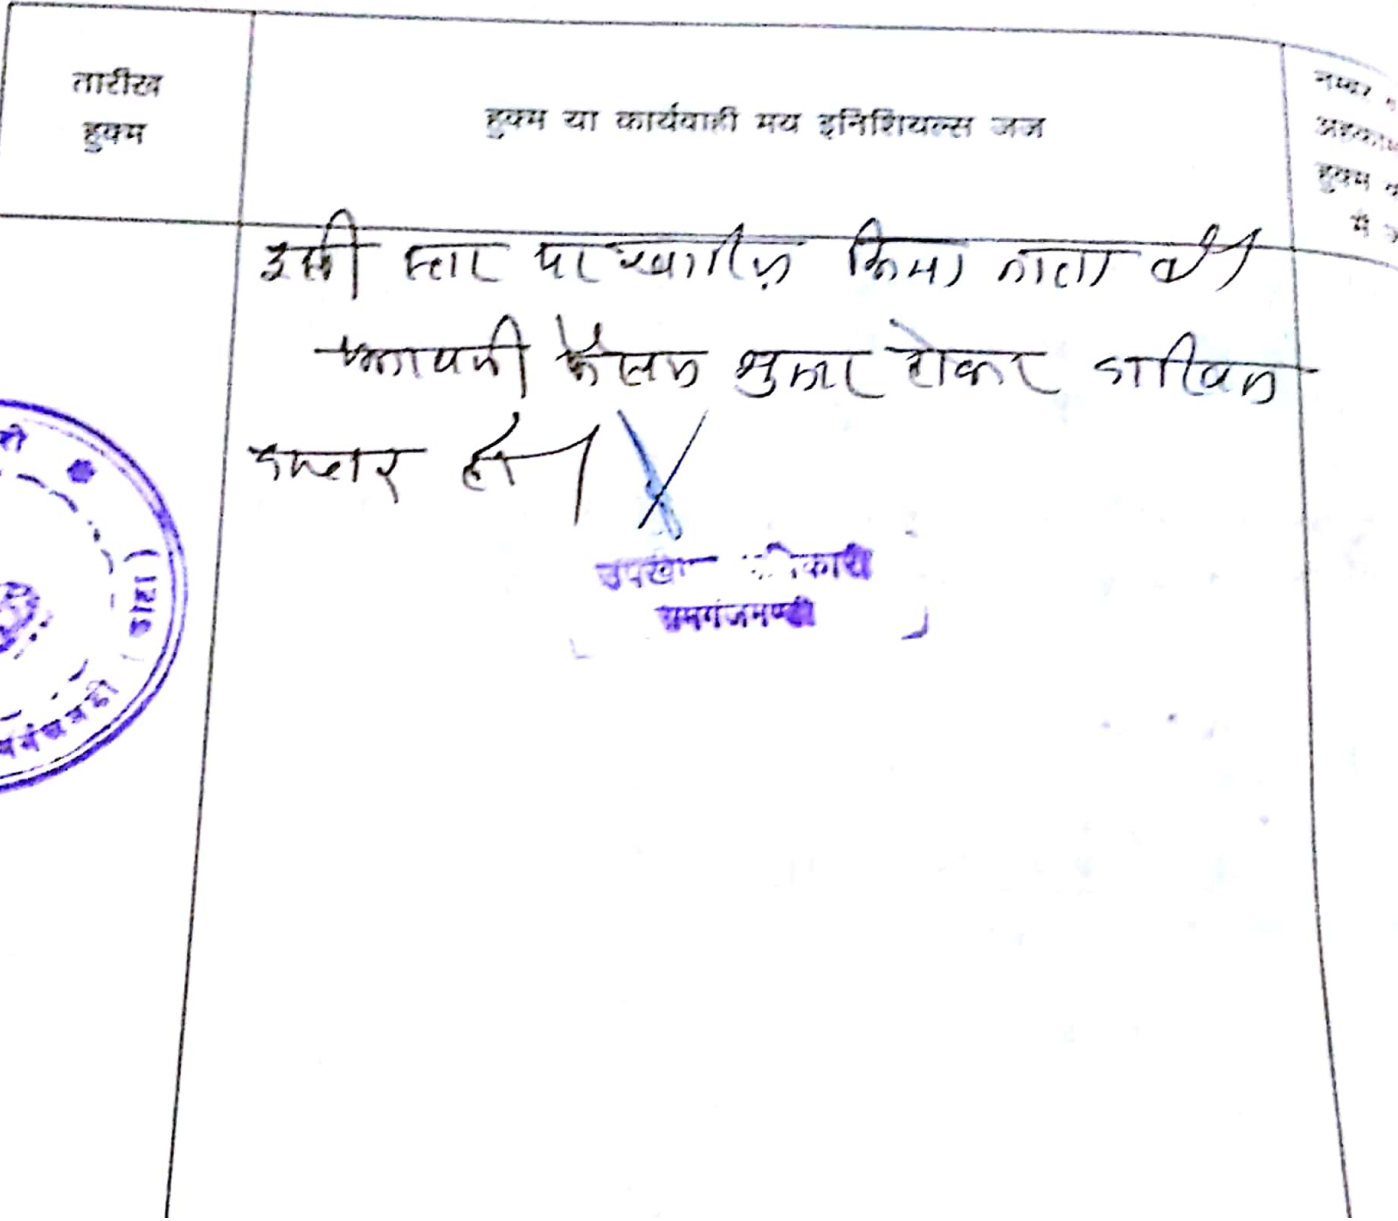 तारीख
हुक्म
हुक्म या कार्यवाही मय इनिशियल्स जज
नम्बर
हुक्म
में
इसी स्तर पर खारीज किया जाता है।
पत्रावली फैसल शुमार होकर दाखिल
दफ्तर हो।
रामगंजमण्डी